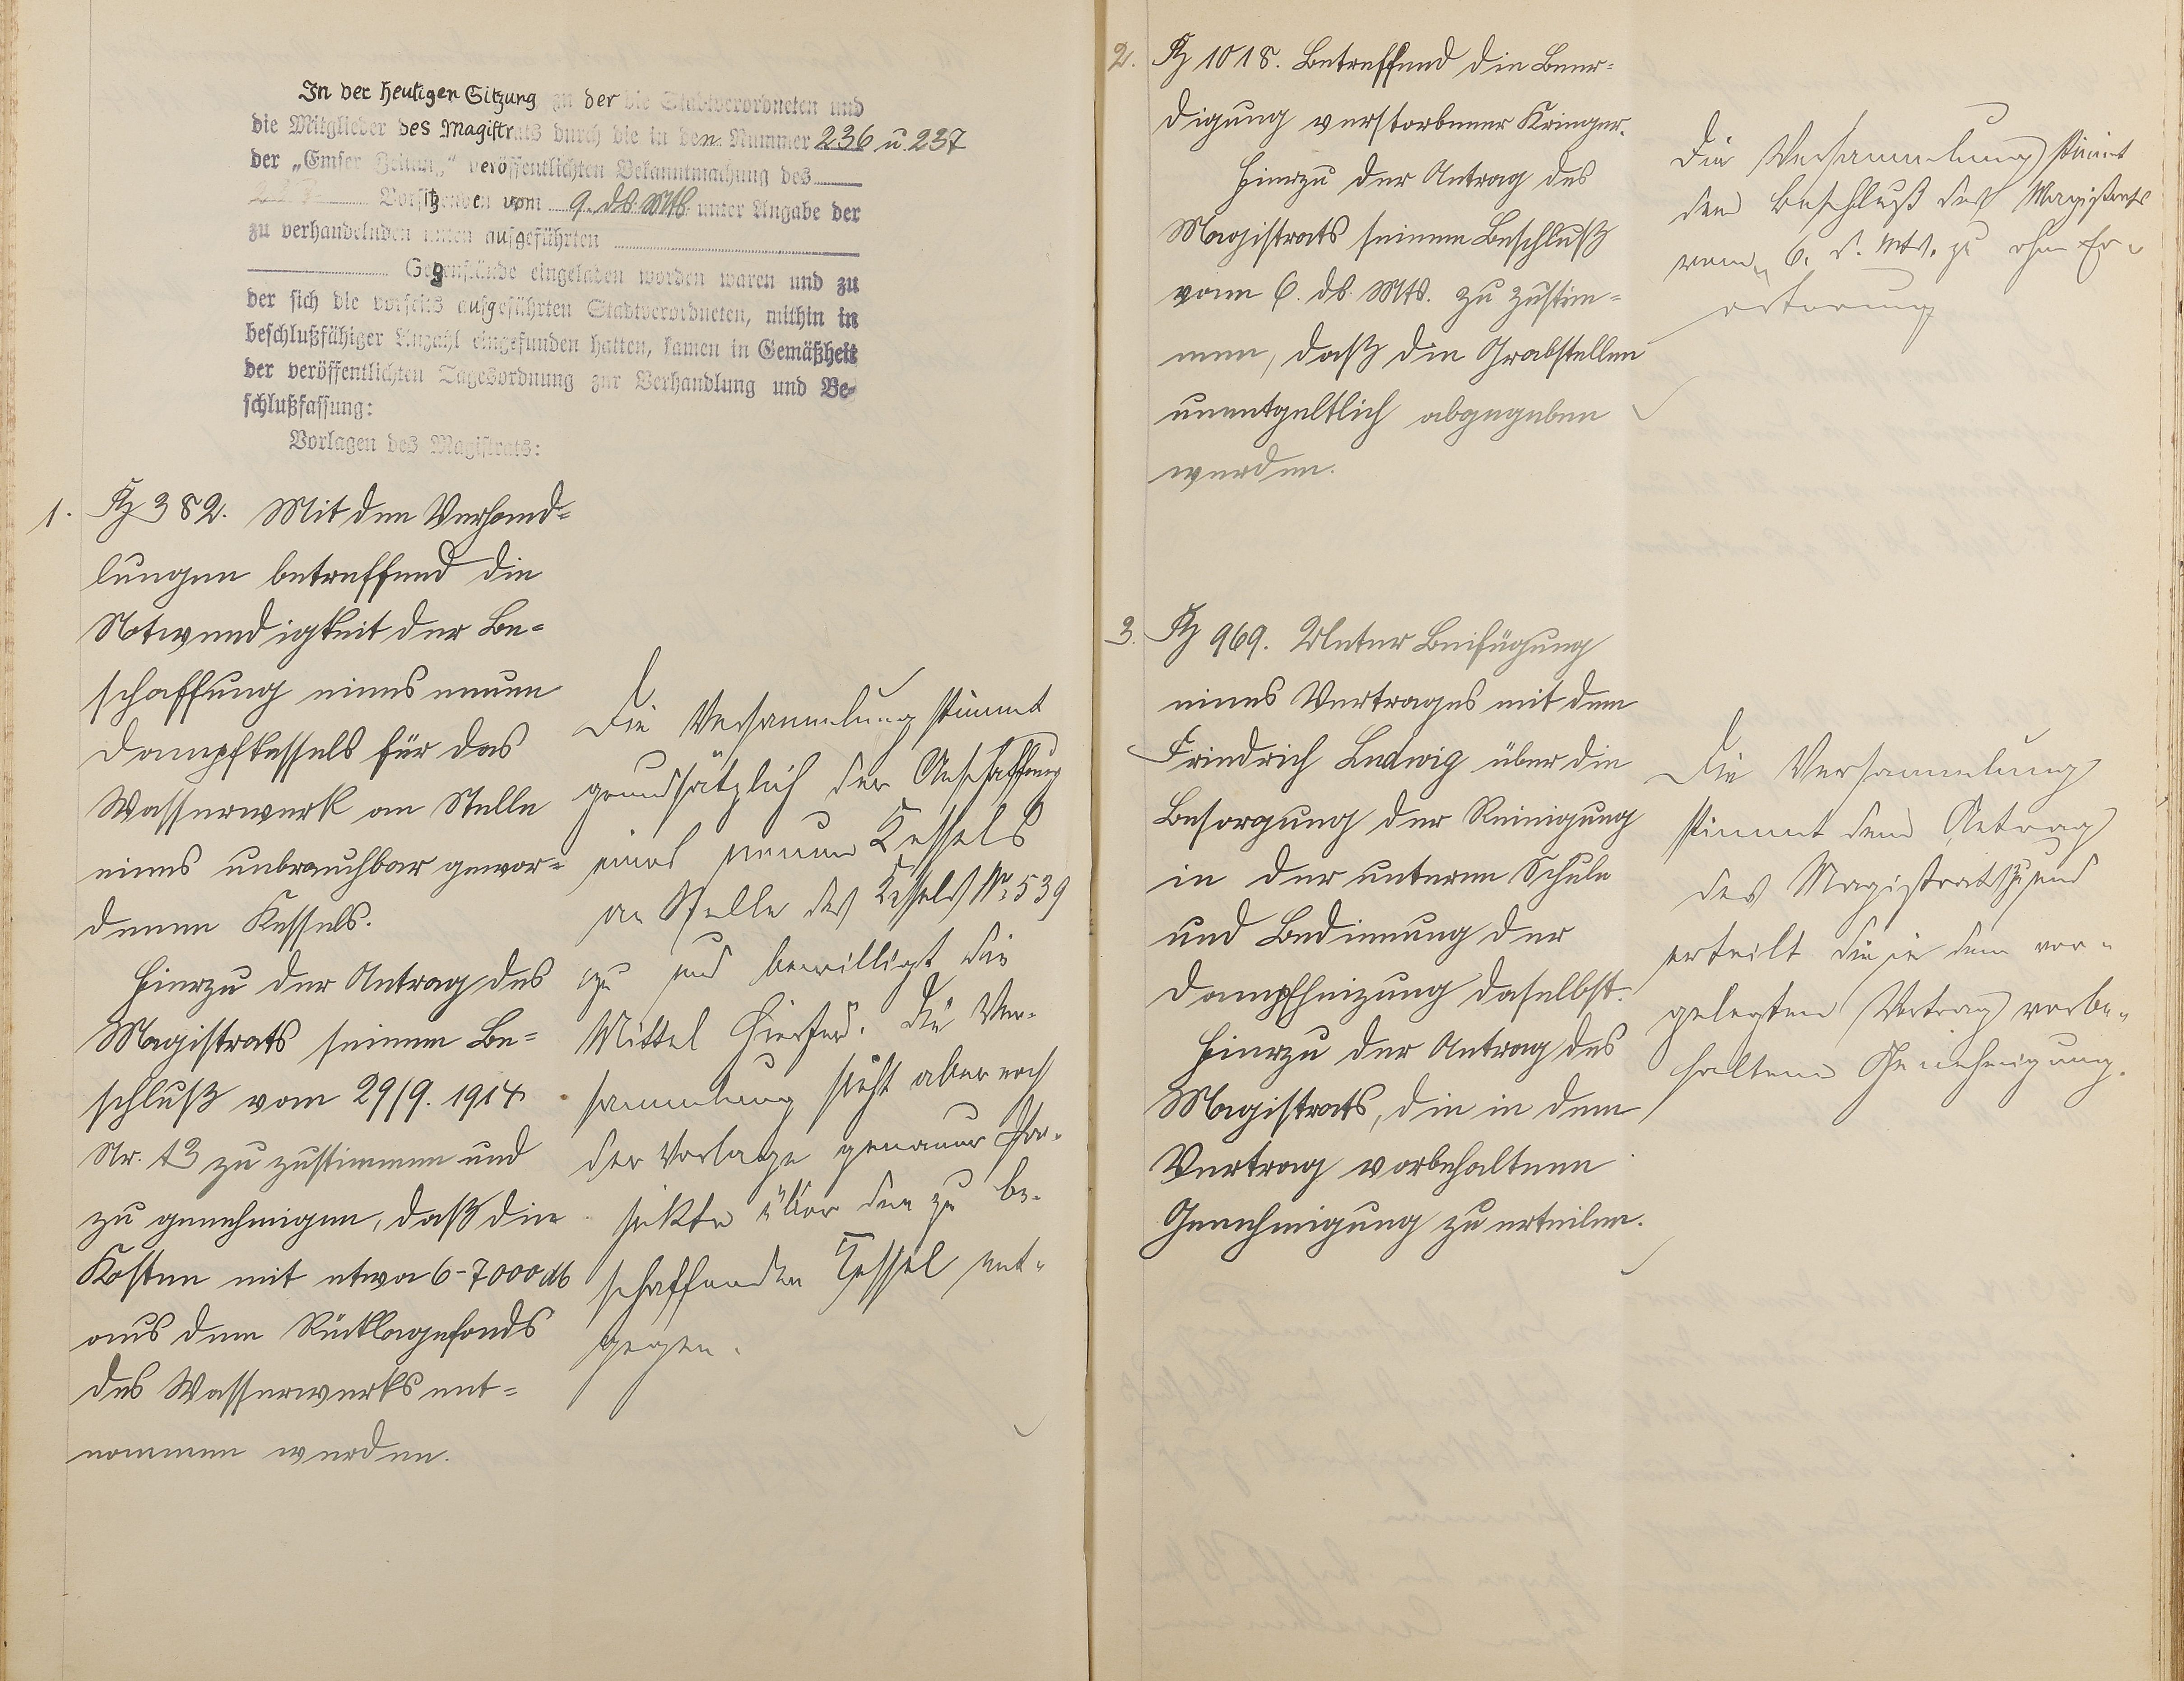 In der heutigen Sitzung zu der die Stadtverordneten und
die Mitglieder des Magistrats durch die in den Nummer 236 u. 237
der „Emser Zeitung“ veröffentlichten Bekanntmachung des
Vorsitzenden vom 9. ds. Mts. unter Angabe der
zu verhandelnden unten aufgeführten
Gegenstände eingeladen worden waren und zu
der sich die vorseits aufgeführten Stadtverordneten, mithin in
beschlußfähiger Anzahl eingefunden hatten, kamen in Gemäßheit
der veröffentlichten Tagesordnung zur Verhandlung und Be-
schlußfassung:
Vorlagen des Magistrats:
1. 382. Mit den Verhand-
lungen betreffend die
Notwendigkeit der Be-
schaffung eines neuen
Dampfkessels für das
Wasserwerk an Stelle
eines unbrauchbar gewor-
denen Kessels.
Hierzu der Antrag des
Magistrats seinem Be-
schluß vom 29/9. 1914
Nr. 13 zu zustimmen und
zu genehmigen, daß die
Kosten mit etwa 6-7000 M
aus dem Rücklagefonds
des Wasserwerks ent-
nommen werden.
Die Versammlung stimmt
grundsätzlich der Anschaffung
eines neuen Kessels
an Stelle des Kessels No. 539
zu und bewilligt die
Mittel hierfür. Die Ver-
sammlung sieht aber noch
der Vorlage genauer Pro-
jekte über den zu be-
schaffenden Kessel ent-
gegen.
2. 1018. Betreffend die Beer-
digung verstorbener Krieger.
Hierzu der Antrag des
Magistrats seinem Beschluß
vom 6. ds. Mts. zu zustim-
men, daß die Grabstellen
unentgeltlich abgegeben
werden.
Die Versammlung stimmt
dem Beschluß des Magistrats
vom 6. d. Mts. zu ohne Er-
örterung
3. 969. Unter Beifügung
eines Vertrages mit dem
Friedrich Ludwig über die
Besorgung der Reinigung
in der unteren Schule
und Bedienung der
Dampfheizung daselbst.
Hierzu der Antrag des
Magistrats, die in dem
Vertrag vorbehaltene
Genehmigung zu erteilen.
Die Versammlung
stimmt dem Antrag
des Magistrats zu und
erteilt die in dem vor-
gelegten Vertrag vorbe-
haltene Genehmigung.